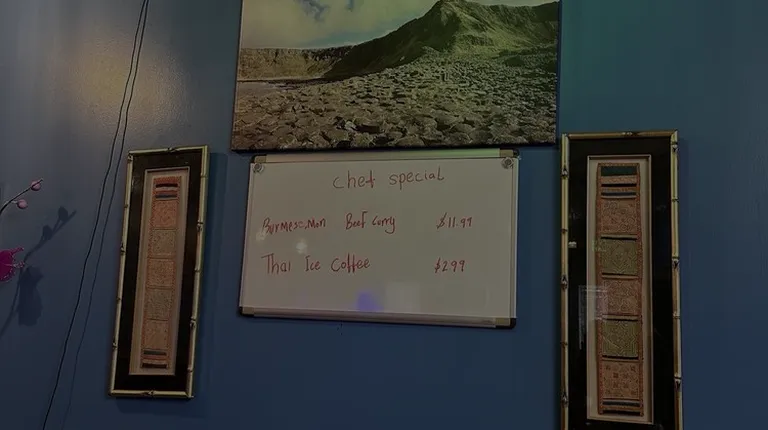 chef special
Burmese.Mon Beef Curry $11.99
Thai Ice Coffee $2.99